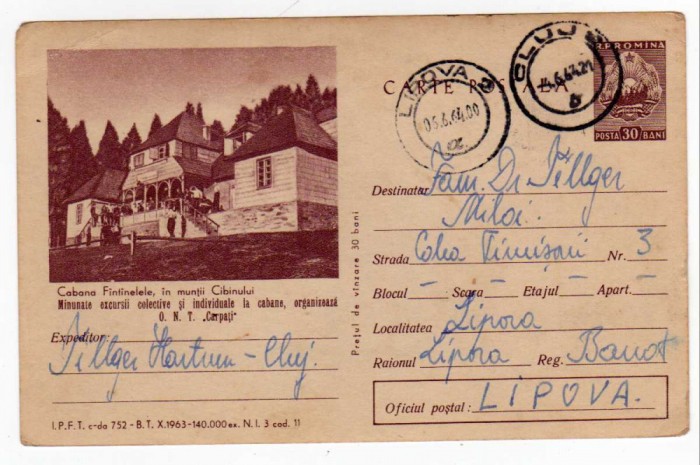 R.P.ROMINA
CARTE POȘTALĂ
POSTA 30 BANI
CLUJ
4.6.64.21
LIPOVA
05.6.64.00
a
Destinatar Fam. Dr Tellger
Miloi.
Strada Calea Timișorii Nr. 3
Blocul – Scara – Etajul – Apart. –
Localitatea Lipova
Raionul Lipova Reg. Banat
Oficiul poștal: LIPOVA.
Prețul de vînzare 30 bani
Cabana Fîntînelele, în munții Cibinului
Minunate excursii colective și individuale la cabane, organizează
O. N. T. „Carpați"
Expeditor:
Tellger Hartmu – Cluj.
I.P.F.T. c-da 752 - B.T. X.1963-140.000 ex. N.I. 3 cod. 11